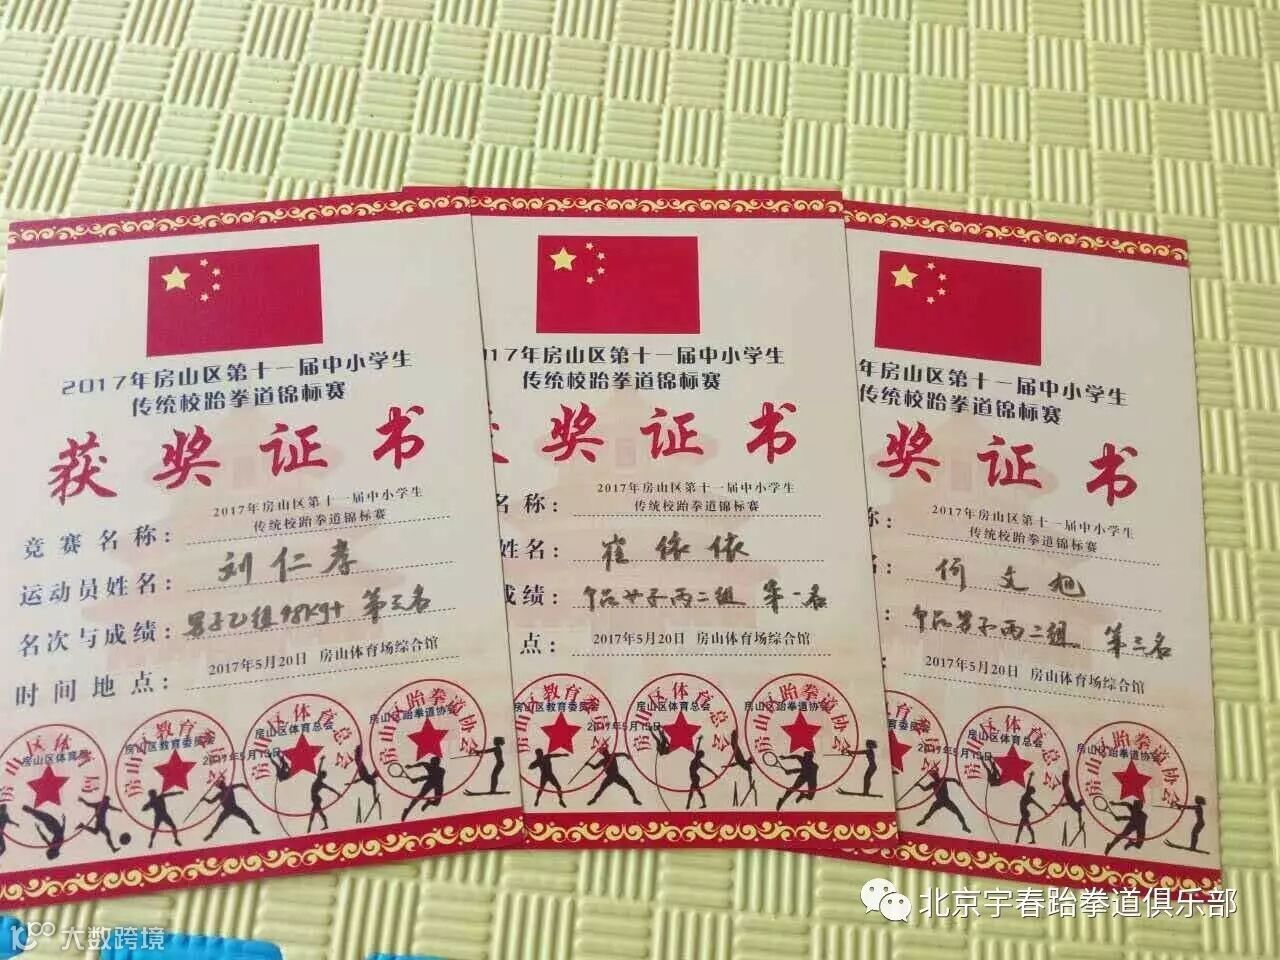 2017年房山区第十一届中小学生
传统校跆拳道锦标赛
获奖证书
2017年房山区第十一届中小学生
传统校跆拳道锦标赛
竞赛名称：
运动员姓名：
刘仁孝
名次与成绩：
男子乙组78kg+ 第三名
时间地点：
2017年5月20日 房山体育场综合馆
房山区体育局
房山区教育委员会
房山区体育总会
房山区跆拳道协会
2017年5月15日
17年房山区第十一届中小学生
传统校跆拳道锦标赛
奖证书
2017年房山区第十一届中小学生
传统校跆拳道锦标赛
名称：
姓名：
崔依依
成绩：
个品女子丙二组 第一名
点：
2017年5月20日 房山体育场综合馆
房山区教育委员会
房山区体育总会
房山区跆拳道协会
2017年5月15日
年房山区第十一届中小学生
传统校跆拳道锦标赛
奖证书
2017年房山区第十一届中小学生
传统校跆拳道锦标赛
称：
何文旭
个品男子丙二组 第三名
2017年5月20日 房山体育场综合馆
房山区体育总会
房山区跆拳道协会
2017年5月15日
北京宇春跆拳道俱乐部
大数跨境